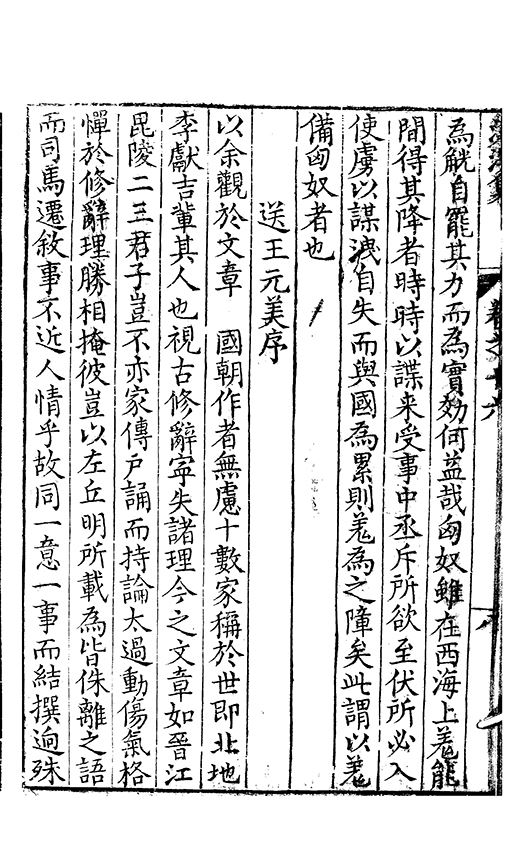 為觥自罷其力而為實効何益哉匈奴雖在西海上羗能
間得其降者時時以諜来受事中丞斥所欲至伏所必入
使虜以謀洩自失而與國為累則羗為之障矣此謂以羗
備匈奴者也
送王元美序
以余觀於文章 國朝作者無慮十數家稱於世即北地
李獻吉輩其人也視古修辭寧失諸理今之文章如晉江
毘陵二三君子豈不亦家傳户誦而持論太過動傷氣格
憚於修辭理勝相掩彼豈以左丘明所載為皆侏離之語
而司馬遷敘事不近人情乎故同一意一事而結撰逈殊